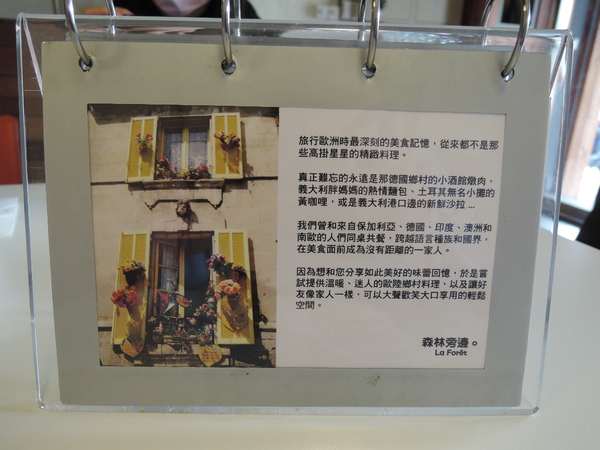 旅行歐洲時最深刻的美食記憶，從來都不是那
些高掛星星的精緻料理。
真正難忘的永遠是那德國鄉村的小酒館燉肉、
義大利胖媽媽的熱情麵包、土耳其無名小攤的
黃咖哩，或是義大利港口邊的新鮮沙拉 ...
我們曾和來自保加利亞、德國、印度、澳洲和
南歐的人們同桌共餐，跨越語言種族和國界，
在美食面前成為沒有距離的一家人。
因為想和您分享如此美好的味蕾回憶，於是嘗
試提供溫暖、迷人的歐陸鄉村料理，以及讓好
友像家人一樣，可以大聲歡笑大口享用的輕鬆
空間。
森林旁邊。
La Forêt